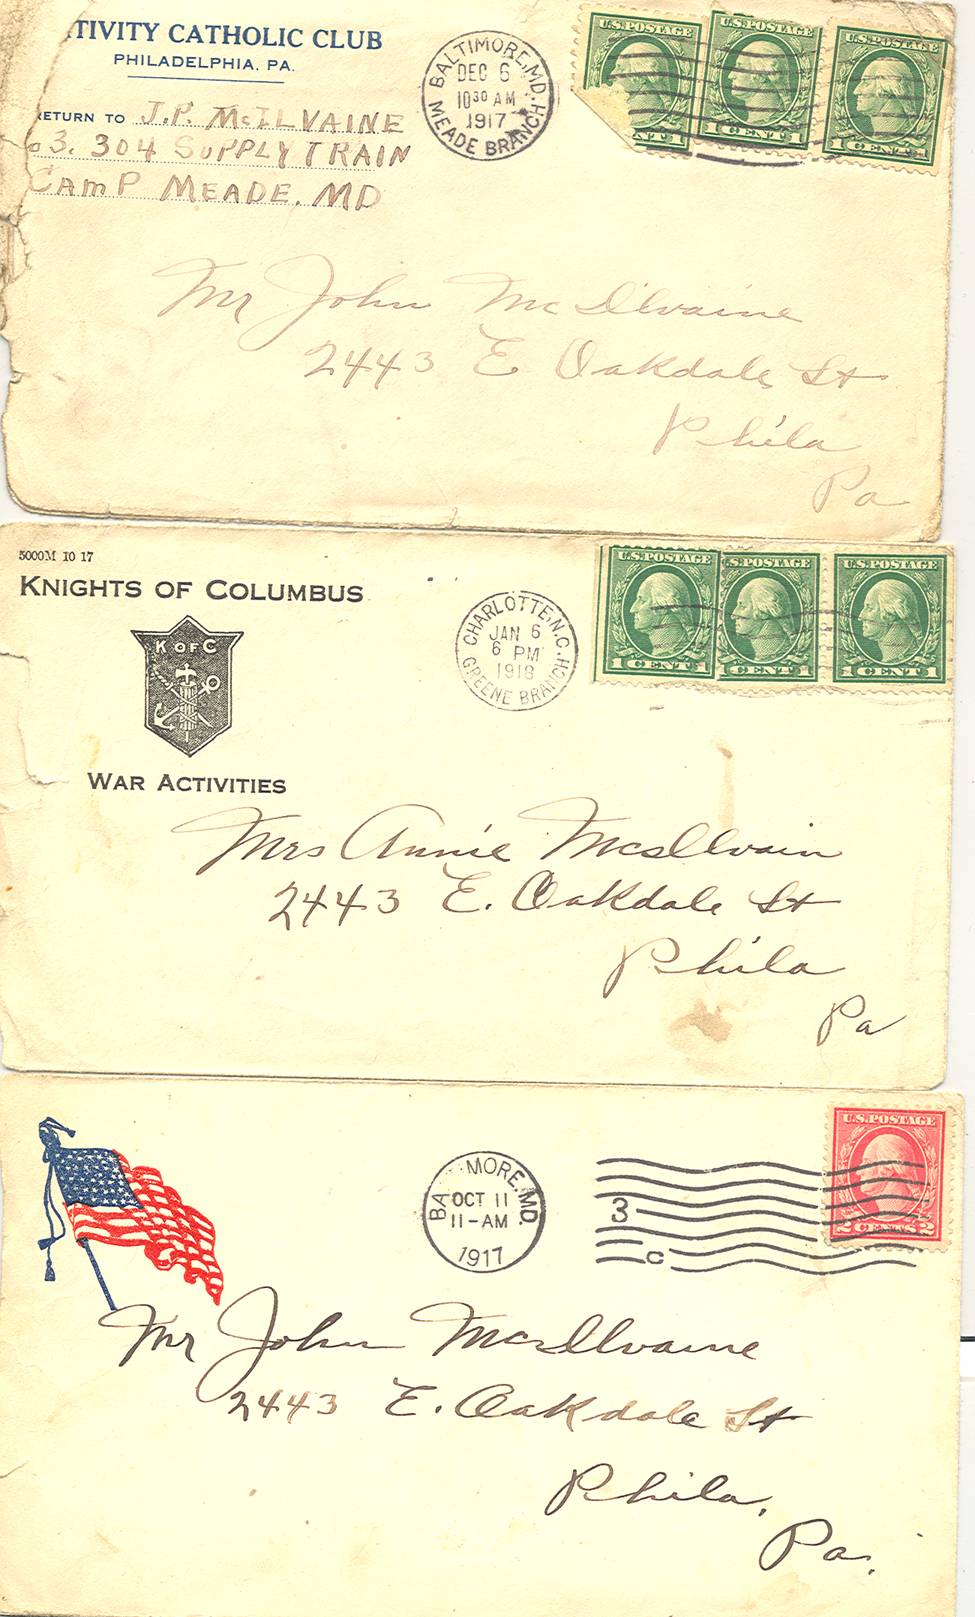 TIVITY CATHOLIC CLUB
PHILADELPHIA, PA.
RETURN TO J.P. McILVAINE
o 3. 304 SUPPLY TRAIN
CAMP MEADE. MD
BALTIMORE, MD.
DEC 6
10 30 AM
1917
MEADE BRANCH
U.S. POSTAGE
U.S. POSTAGE
1 CENT 1
U.S. POSTAGE
1 CENT 1
Mr John McIlvaine
2443 E Oakdale St
Phila
Pa
5000M 10 17
KNIGHTS OF COLUMBUS
K OF C
WAR ACTIVITIES
CHARLOTTE, N.C.
JAN 6
6 PM
1918
GREENE BRANCH
U.S. POSTAGE
1 CENT 1
U.S. POSTAGE
1 CENT 1
U.S. POSTAGE
1 CENT 1
Mrs Annie McIlvain
2443 E. Oakdale St
Phila
Pa
BA MORE, MD.
OCT 11
11-AM
1917
3
C
U.S. POSTAGE
2 CENTS 2
Mr John McIlvaine
2443 E. Oakdale St
Phila,
Pa.